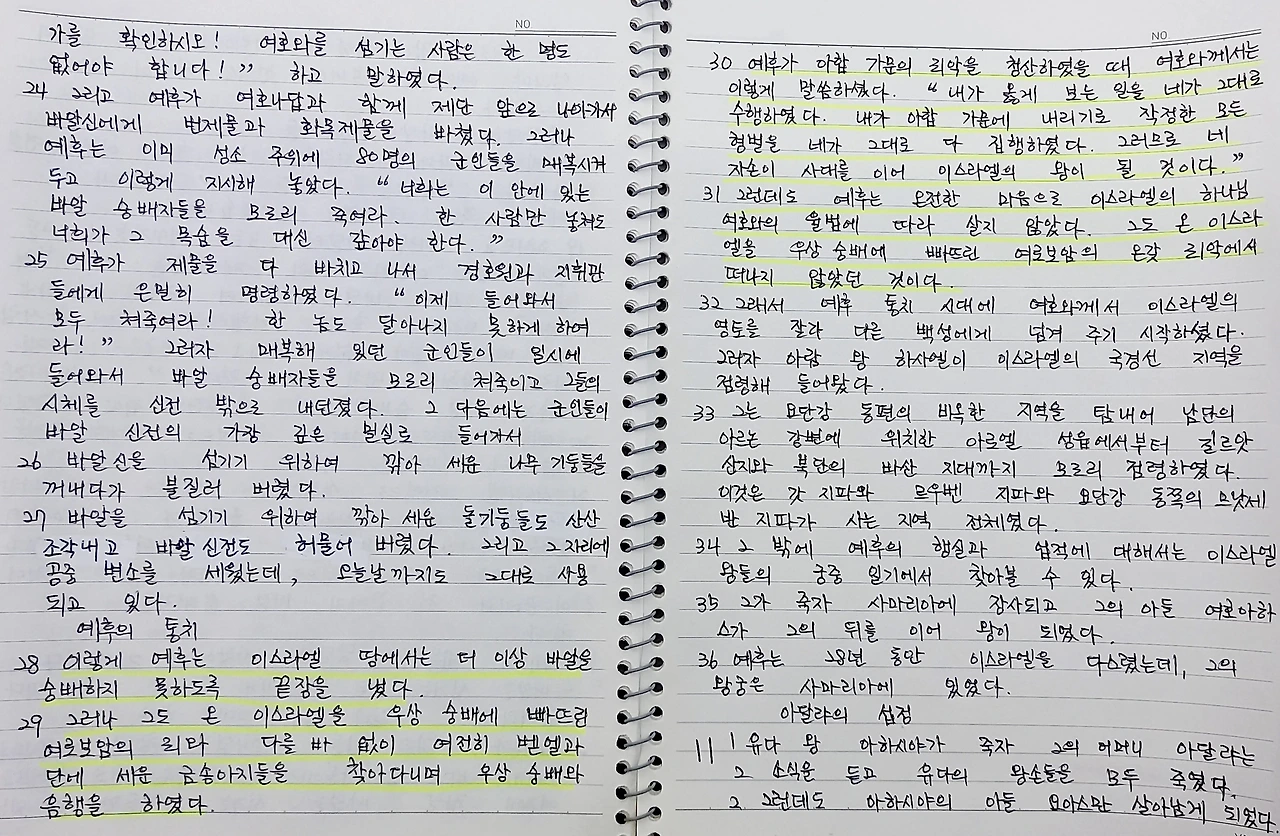 NO
가를 확인하시오! 여호와를 섬기는 사람은 한 명도
없어야 합니다!" 하고 말하였다.
24 그리고 예후가 여호나답과 함께 제단 앞으로 나아가서
바알신에게 번제물과 화목제물을 바쳤다. 그러나
예후는 이미 성소 주위에 80명의 군인들을 매복시켜
두고 이렇게 지시해 놓았다. "너희는 이 안에 있는
바알 숭배자들을 모조리 죽여라. 한 사람만 놓쳐도
너희가 그 목숨을 대신 갚아야 한다."
25 예후가 제물을 다 바치고 나서 경호원과 지휘관
들에게 은밀히 명령하였다. "이제 들어와서
모두 쳐죽여라! 한 놈도 달아나지 못하게 하여
라!" 그러자 매복해 있던 군인들이 일시에
들어와서 바알 숭배자들을 모조리 쳐죽이고 그들의
시체를 신전 밖으로 내던졌다. 그 다음에는 군인들이
바알 신전의 가장 깊은 밀실로 들어가서
26 바알신을 섬기기 위하여 깎아 세운 나무 기둥들을
꺼내다가 불질러 버렸다.
27 바알을 섬기기 위하여 깎아 세운 돌기둥들도 산산
조각내고 바알 신전도 허물어 버렸다. 그리고 그 자리에
공중 변소를 세웠는데, 오늘날까지도 그대로 사용
되고 있다.
예후의 통치
28 이렇게 예후는 이스라엘 땅에서는 더 이상 바알을
숭배하지 못하도록 끝장을 냈다.
29 그러나 그도 온 이스라엘을 우상 숭배에 빠뜨린
여로보암의 죄다 다를 바 없이 여전히 벧엘과
단에 세운 금송아지들을 찾아다니며 우상 숭배와
음행을 하였다.
NO
30 예후가 아합 가문의 죄악을 청산하였을 때 여호와께서는
이렇게 말씀하셨다. "내가 옳게 보는 일을 네가 그대로
수행하였다. 내가 아합 가문에 내리기로 작정한 모든
형벌을 네가 그대로 다 집행하였다. 그러므로 네
자손이 사대를 이어 이스라엘의 왕이 될 것이다."
31 그런데도 예후는 온전한 마음으로 이스라엘의 하나님
여호와의 율법에 따라 살지 않았다. 그도 온 이스라
엘을 우상 숭배에 빠뜨린 여로보암의 온갖 죄악에서
떠나지 않았던 것이다.
32 그래서 예후 통치 시대에 여호와께서 이스라엘의
영토를 잘라 다른 백성에게 넘겨 주기 시작하셨다.
그러자 아람 왕 하사엘이 이스라엘의 국경선 지역을
점령해 들어왔다.
33 그는 요단강 동편의 비옥한 지역을 탐내어 남단의
아르논 강변에 위치한 아로엘 성읍에서부터 길르앗
산지와 북단의 바산 지대까지 모조리 점령하였다.
이것은 갓 지파와 르우벤 지파와 요단강 동쪽의 므낫세
반 지파가 사는 지역 전체였다.
34 그 밖에 예후의 행실과 업적에 대해서는 이스라엘
왕들의 궁중 일기에서 찾아볼 수 있다.
35 그가 죽자 사마리아에 장사되고 그의 아들 여호아하
스가 그의 뒤를 이어 왕이 되었다.
36 예후는 28년 동안 이스라엘을 다스렸는데, 그의
왕궁은 사마리아에 있었다.
아달랴의 섭정
11 1 유다 왕 아하시야가 죽자 그의 어머니 아달랴는
그 소식을 듣고 유다의 왕손들을 모두 죽였다.
2 그런데도 아하시야의 아들 요아스만 살아남게 되었다.